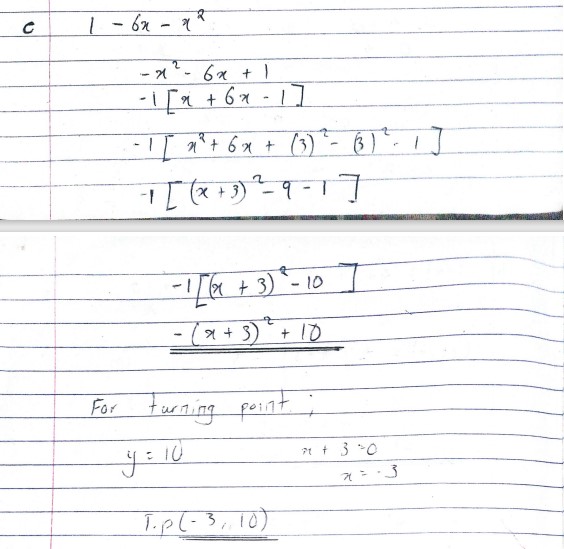 c 1 - 6x - x²
-x² - 6x + 1
-1 [x + 6x - 1]
-1 [x² + 6x + (3)² - (3)² - 1]
-1 [(x + 3)² - 9 - 1]
-1 [(x + 3)² - 10]
-(x + 3)² + 10
For turning point ;
y = 10 x + 3 = 0
x = -3
T.p (-3, 10)